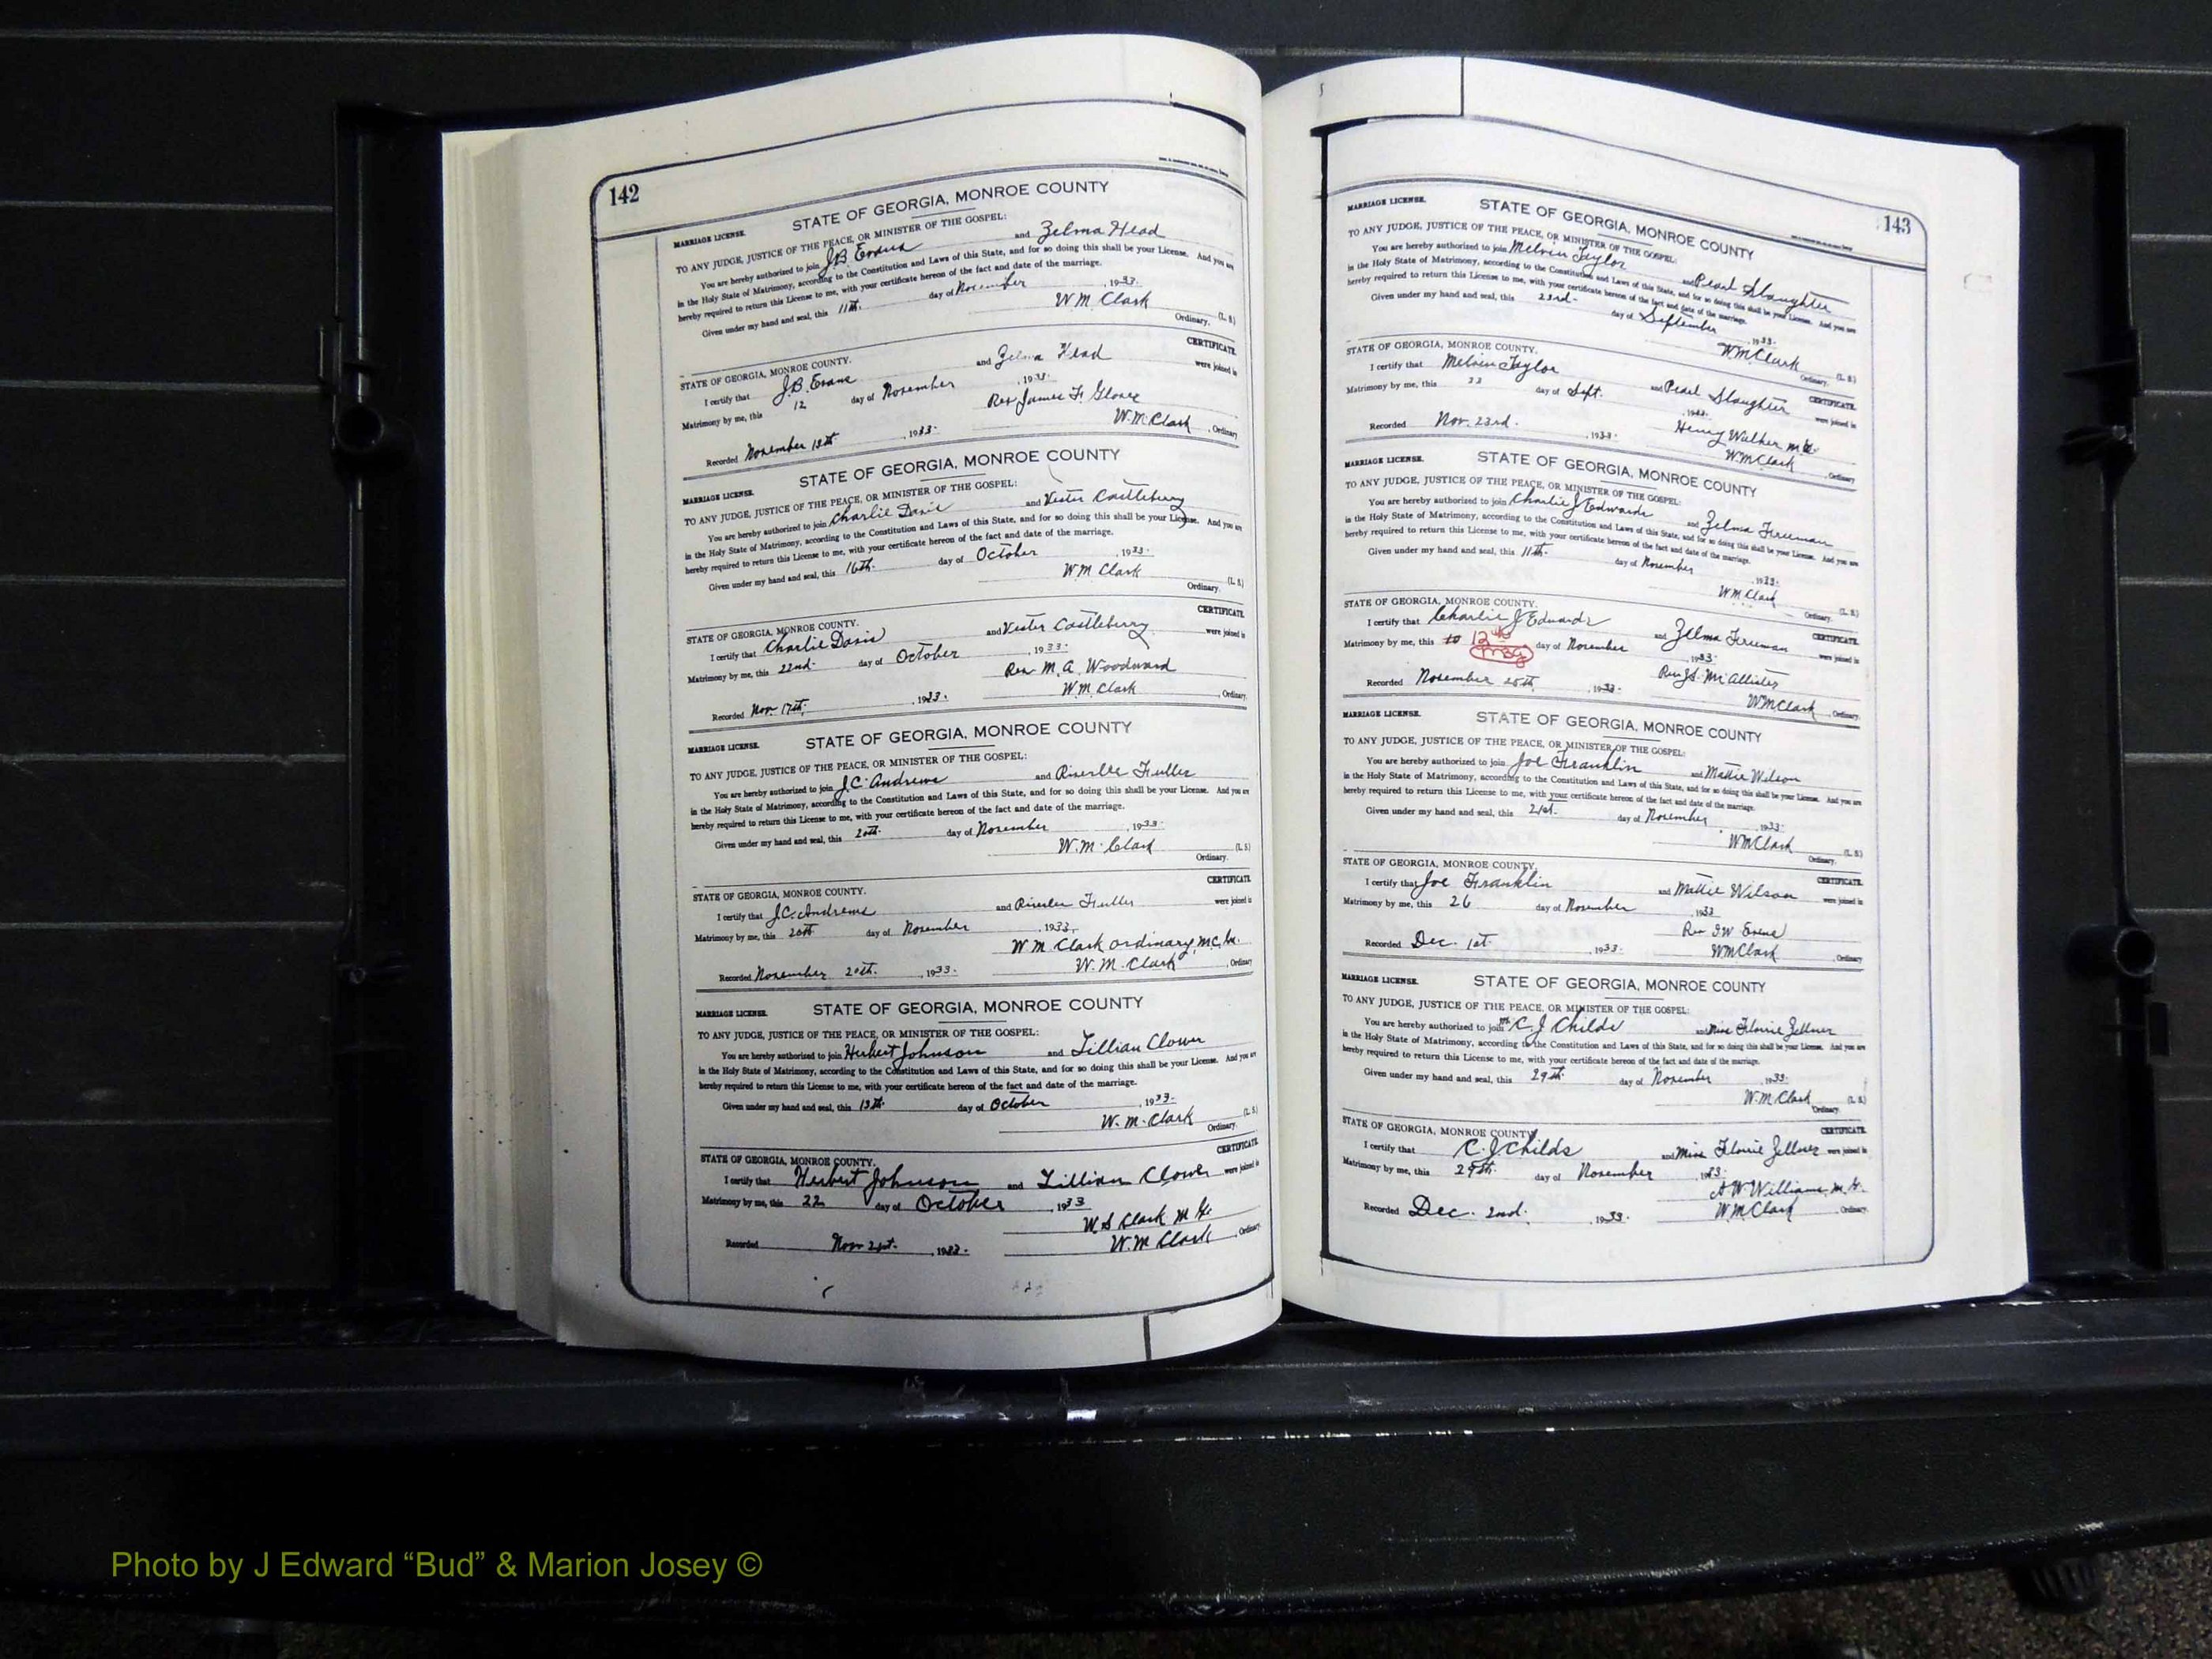 142
STATE OF GEORGIA, MONROE COUNTY
MARRIAGE LICENSE.
TO ANY JUDGE, JUSTICE OF THE PEACE, OR MINISTER OF THE GOSPEL:
You are hereby authorized to join J.B. Evans and Zelma Head
in the Holy State of Matrimony, according to the Constitution and Laws of this State, and for so doing this shall be your License. And you are
hereby required to return this License to me, with your certificate hereon of the fact and date of the marriage.
Given under my hand and seal, this 11th. day of November, 1933.
W M Clark (L. S.)
Ordinary.
STATE OF GEORGIA, MONROE COUNTY. CERTIFICATE.
I certify that J.B. Evans and Zelma Head were joined in
Matrimony by me, this 12 day of November, 1933.
Rev James F. Glover
Recorded November 18th, 1933. W.M. Clark, Ordinary
STATE OF GEORGIA, MONROE COUNTY
MARRIAGE LICENSE.
TO ANY JUDGE, JUSTICE OF THE PEACE, OR MINISTER OF THE GOSPEL:
You are hereby authorized to join Charlie Davis and Vester Castleberry
in the Holy State of Matrimony, according to the Constitution and Laws of this State, and for so doing this shall be your License. And you are
hereby required to return this License to me, with your certificate hereon of the fact and date of the marriage.
Given under my hand and seal, this 16th. day of October, 1933.
W M Clark (L. S.)
Ordinary.
STATE OF GEORGIA, MONROE COUNTY. CERTIFICATE.
I certify that Charlie Davis and Vester Castleberry were joined in
Matrimony by me, this 22nd. day of October, 1933.
Rev M. A. Woodward
Recorded Nov. 17th, 1933. W.M. Clark, Ordinary.
STATE OF GEORGIA, MONROE COUNTY
MARRIAGE LICENSE.
TO ANY JUDGE, JUSTICE OF THE PEACE, OR MINISTER OF THE GOSPEL:
You are hereby authorized to join J.C. Andrews and Riserlee Fuller
in the Holy State of Matrimony, according to the Constitution and Laws of this State, and for so doing this shall be your License. And you are
hereby required to return this License to me, with your certificate hereon of the fact and date of the marriage.
Given under my hand and seal, this 20th. day of November, 1933.
W. M. Clark (L. S.)
Ordinary.
STATE OF GEORGIA, MONROE COUNTY. CERTIFICATE
I certify that J.C. Andrews and Riserlee Fuller were joined in
Matrimony by me, this 20th day of November, 1933.
W M Clark ordinary, M.C. Ga.
Recorded November 20th., 1933. W. M. Clark, Ordinary
STATE OF GEORGIA, MONROE COUNTY
MARRIAGE LICENSE.
TO ANY JUDGE, JUSTICE OF THE PEACE, OR MINISTER OF THE GOSPEL:
You are hereby authorized to join Herbert Johnson and Lillian Clower
in the Holy State of Matrimony, according to the Constitution and Laws of this State, and for so doing this shall be your License. And you are
hereby required to return this License to me, with your certificate hereon of the fact and date of the marriage.
Given under my hand and seal, this 13th. day of October, 1933.
W. M. Clark (L. S.)
Ordinary.
STATE OF GEORGIA, MONROE COUNTY. CERTIFICATE.
I certify that Herbert Johnson and Lillian Clower were joined in
Matrimony by me, this 22 day of October, 1933
W. S Clark M. G.
Recorded Nov 21st., 1933. W. M Clark, Ordinary.
143
STATE OF GEORGIA, MONROE COUNTY
MARRIAGE LICENSE.
TO ANY JUDGE, JUSTICE OF THE PEACE, OR MINISTER OF THE GOSPEL:
You are hereby authorized to join Melvin Taylor and Pearl Slaughter
in the Holy State of Matrimony, according to the Constitution and Laws of this State, and for so doing this shall be your License. And you are
hereby required to return this License to me, with your certificate hereon of the fact and date of the marriage.
Given under my hand and seal, this 23rd. day of September, 1933.
W M Clark (L. S.)
Ordinary.
STATE OF GEORGIA, MONROE COUNTY. CERTIFICATE.
I certify that Melvin Taylor and Pearl Slaughter were joined in
Matrimony by me, this 23 day of Sept., 1933.
Henry Walker M.G.
Recorded Nov. 23rd., 1933. W M Clark, Ordinary
STATE OF GEORGIA, MONROE COUNTY
MARRIAGE LICENSE.
TO ANY JUDGE, JUSTICE OF THE PEACE, OR MINISTER OF THE GOSPEL:
You are hereby authorized to join Charlie J Edwards and Zelma Freeman
in the Holy State of Matrimony, according to the Constitution and Laws of this State, and for so doing this shall be your License. And you are
hereby required to return this License to me, with your certificate hereon of the fact and date of the marriage.
Given under my hand and seal, this 11th. day of November, 1933.
W M Clark (L. S.)
Ordinary.
STATE OF GEORGIA, MONROE COUNTY. CERTIFICATE.
I certify that Charlie J Edwards and Zelma Freeman were joined in
Matrimony by me, this 12th day of November, 1933.
McAllister
Recorded November 25th, 1933. W M Clark, Ordinary.
STATE OF GEORGIA, MONROE COUNTY
MARRIAGE LICENSE.
TO ANY JUDGE, JUSTICE OF THE PEACE, OR MINISTER OF THE GOSPEL:
You are hereby authorized to join Joe Franklin and Mattie Wilson
in the Holy State of Matrimony, according to the Constitution and Laws of this State, and for so doing this shall be your License. And you are
hereby required to return this License to me, with your certificate hereon of the fact and date of the marriage.
Given under my hand and seal, this 21st. day of November, 1933.
W M Clark (L. S.)
Ordinary.
STATE OF GEORGIA, MONROE COUNTY. CERTIFICATE.
I certify that Joe Franklin and Mattie Wilson were joined in
Matrimony by me, this 26 day of November, 1933
Rev
Recorded Dec. 1st, 1933. W M Clark, Ordinary
STATE OF GEORGIA, MONROE COUNTY
MARRIAGE LICENSE.
TO ANY JUDGE, JUSTICE OF THE PEACE, OR MINISTER OF THE GOSPEL:
You are hereby authorized to join Mr. C. J Childs and Miss Florrie Zellner
in the Holy State of Matrimony, according to the Constitution and Laws of this State, and for so doing this shall be your License. And you are
hereby required to return this License to me, with your certificate hereon of the fact and date of the marriage.
Given under my hand and seal, this 29th. day of November, 1933.
W. M Clark (L. S.)
Ordinary.
STATE OF GEORGIA, MONROE COUNTY. CERTIFICATE.
I certify that C. J Childs and Miss Florrie Zellner were joined in
Matrimony by me, this 29th. day of November, 1933.
A W Williams, M. G.
Recorded Dec. 2nd., 1933. W M. Clark, Ordinary.
Photo by J Edward “Bud” & Marion Josey ©